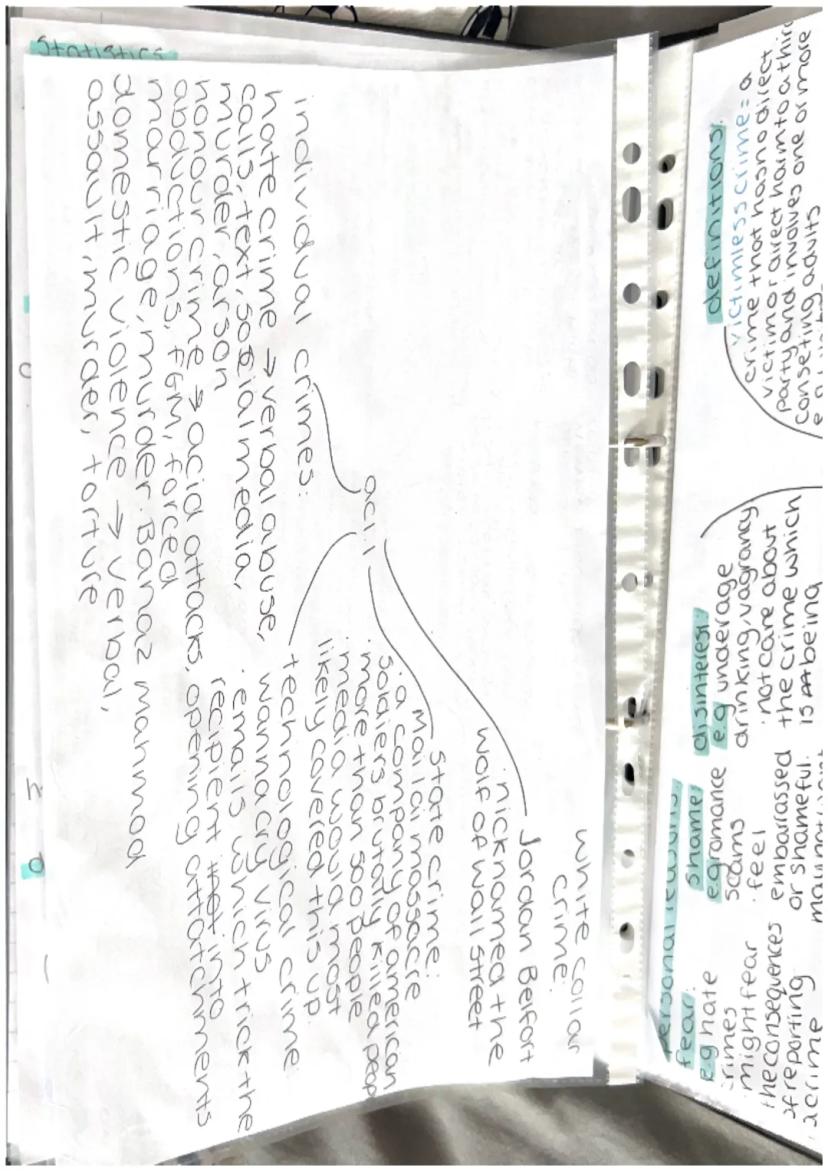 statistics
ac1.1
individual crimes:
hate crime → verbal abuse,
calls, text, social media,
murder, arson
honour crime → acid attacks,
abductions, FGM, forced
marriage, murder. Banaz mahmod
domestic violence → verbal,
assault, murder, torture
white collar
crime:
Jordan Belfort
nicknamed the
wolf of wall street
state crime:
mai lai massacre
· a company of american
soldiers brutally killed peop
· more than 500 people
media would most
likely covered this up.
technological crime:
wannacry virus
· emails which trick the
recipient into
opening attatchments
definitions:
victimless crime = a
crime that has no direct
victim or direct harm to a third
party and involves one or more
conseting adults
disinterest:
e.g underage
drinking, vagrancy
· not care about
the crime which
is being
personal reasons:
shame:
e.g romance
scams
· feel
embarassed
or shameful.
may not want
fear:
e.g hate
crimes
· might fear
the consequences
of reporting
a crime